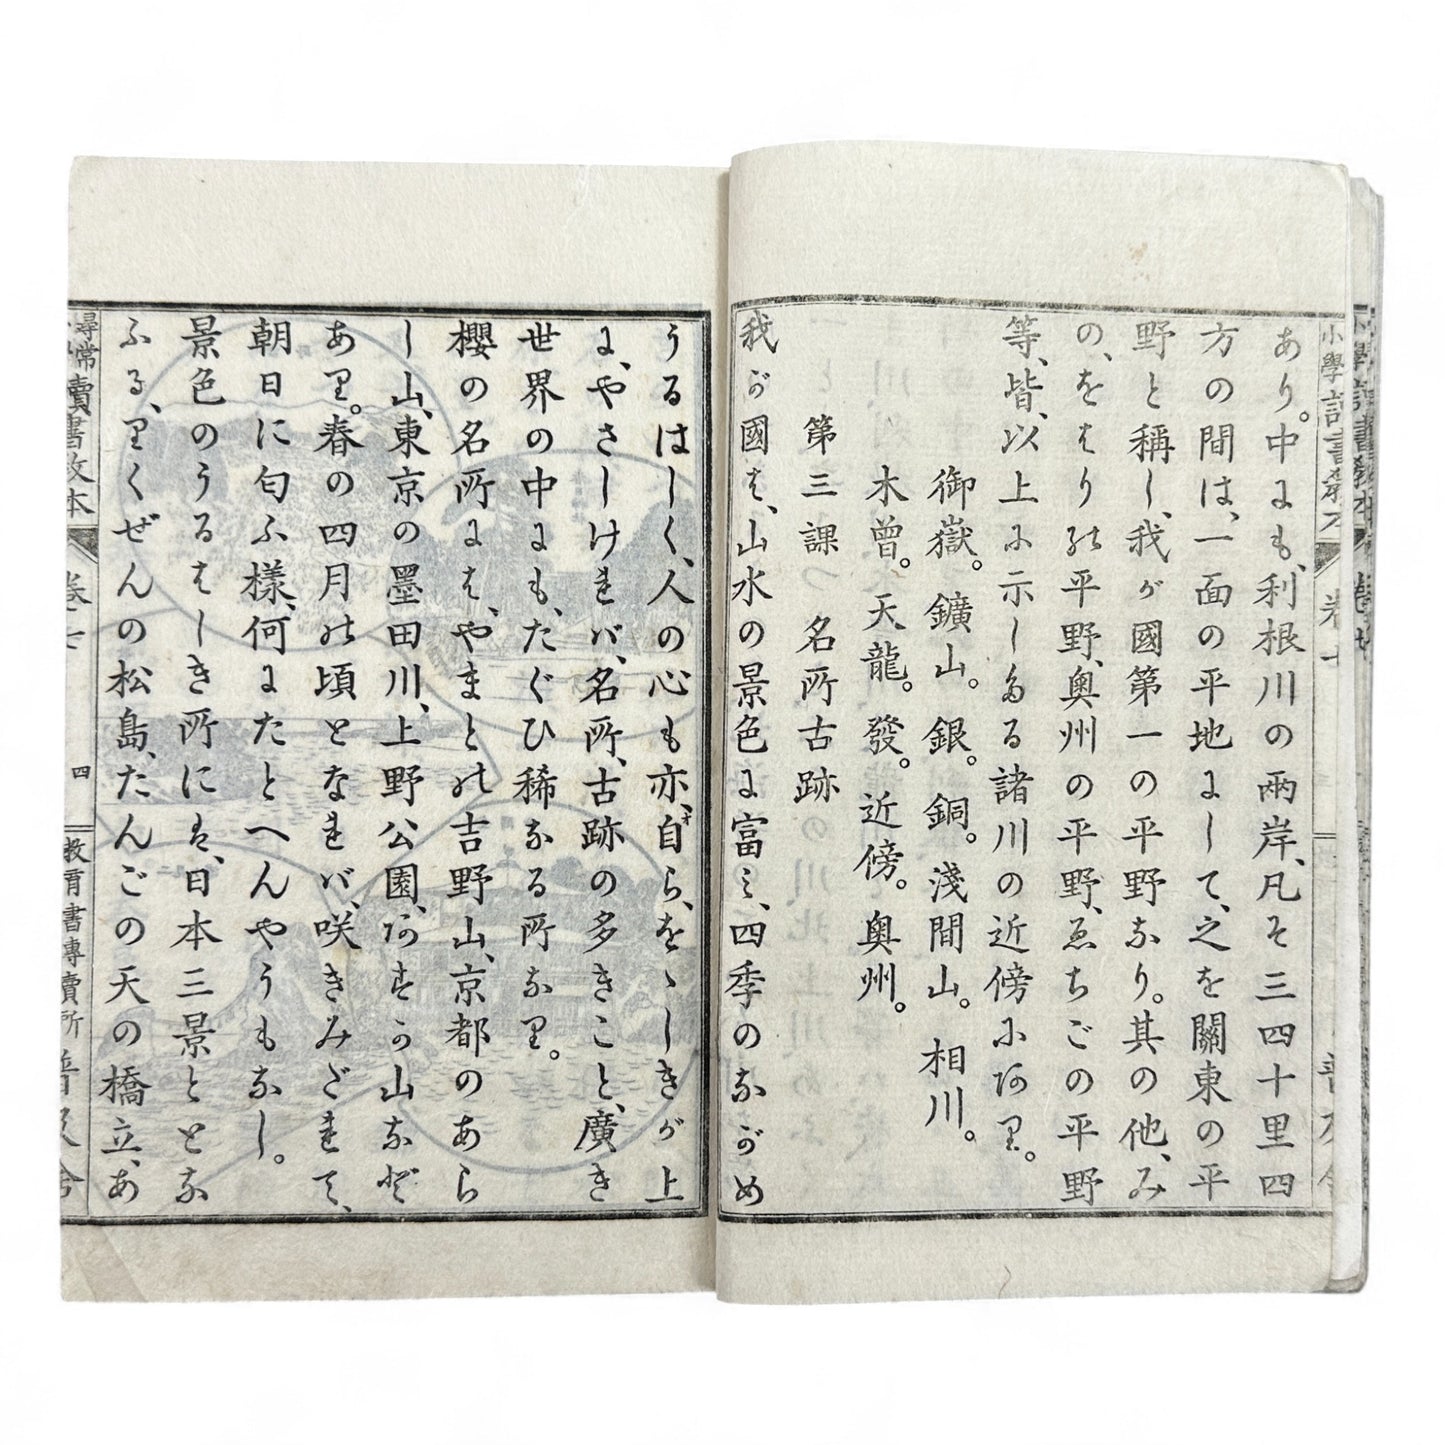 あり。中にも、利根川の兩岸、凡そ三四十里四
方の間は、一面の平地にして、之を關東の平
野と稱し、我が國第一の平野なり。其の他、み
の、をはりの平野、奥州の平野、ゑちごの平野
等、皆、以上に示したる諸川の近傍にあり。
御嶽。鑛山。銀。銅。淺間山。相川。
木曾。天龍。發。近傍。奥州。
第三課 名所古跡
我が國は、山水の景色に富み、四季のながめ
うるはしく、人の心も亦、自ら、をゝしきが上
に、やさしければ、名所、古跡の多きこと、廣き
世界の中にも、たぐひ稀なる所なり。
櫻の名所には、やまとの吉野山、京都のあら
し山、東京の墨田川、上野公園、あすか山など
あり。春の四月の頃となれば、咲きみだれて、
朝日に匂ふ樣、何にたとへんやうもなし。
景色のうるはしき所には、日本三景ととな
ふる、りくぜんの松島、たんごの天の橋立、あ
尋常
讀書教本 卷七 四 教育書專賣所 普及舍